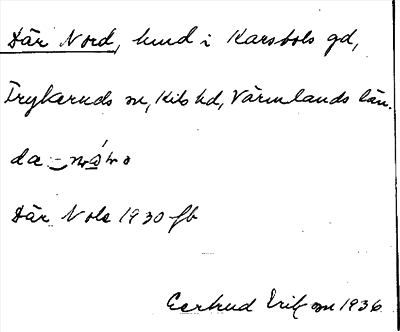 Där Nord, hmd i Karsbols gd,
Frykeruds sn, Kils hd, Värmlands län.
da
Där Nole 1930 fb
Gertrud Ericson 1936